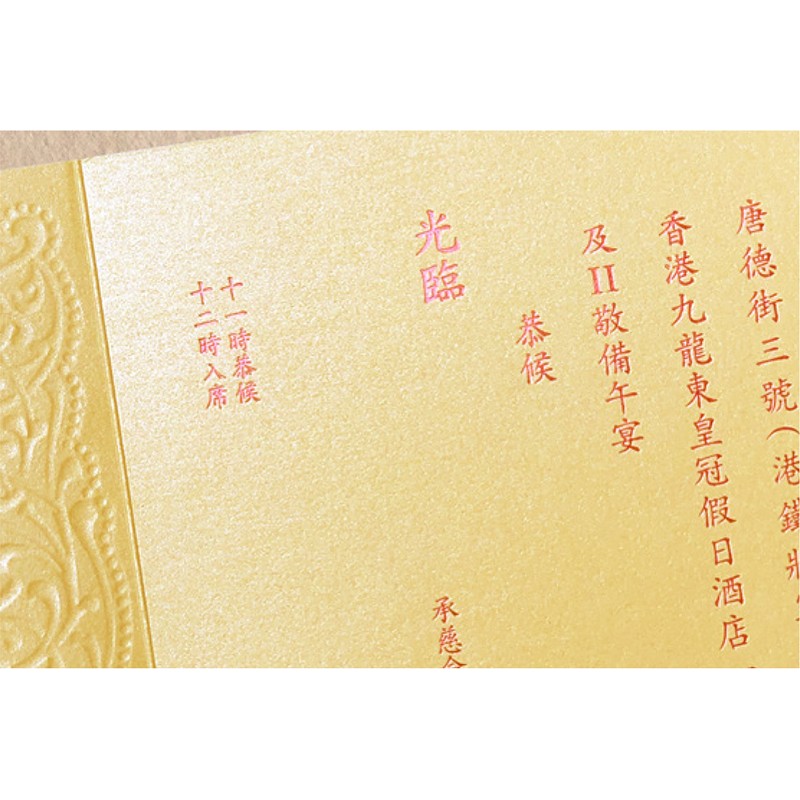 唐德街三號（港鐵將
香港九龍東皇冠假日酒店
及II敬備午宴
恭候
光臨
承慈命
十一時恭候
十二時入席